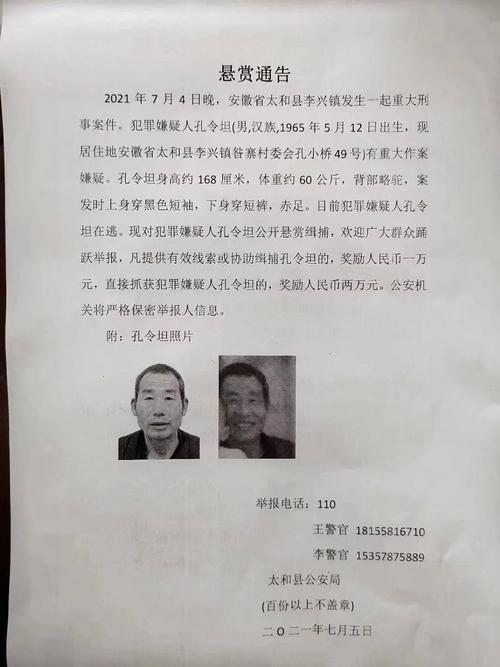 悬赏通告
2021 年 7 月 4 日晚，安徽省太和县李兴镇发生一起重大刑
事案件。犯罪嫌疑人孔令坦(男,汉族,1965 年 5 月 12 日出生，现
居住地安徽省太和县李兴镇昝寨村委会孔小桥 49 号)有重大作案
嫌疑。孔令坦身高约 168 厘米，体重约 60 公斤，背部略驼，案
发时上身穿黑色短袖，下身穿短裤，赤足。目前犯罪嫌疑人孔令
坦在逃。现对犯罪嫌疑人孔令坦公开悬赏缉捕，欢迎广大群众踊
跃举报，凡提供有效线索或协助缉捕孔令坦的，奖励人民币一万
元，直接抓获犯罪嫌疑人孔令坦的，奖励人民币两万元。公安机
关将严格保密举报人信息。
附：孔令坦照片
举报电话：110
王警官 18155816710
李警官 15357875889
太和县公安局
(百份以上不盖章)
二〇二一年七月五日